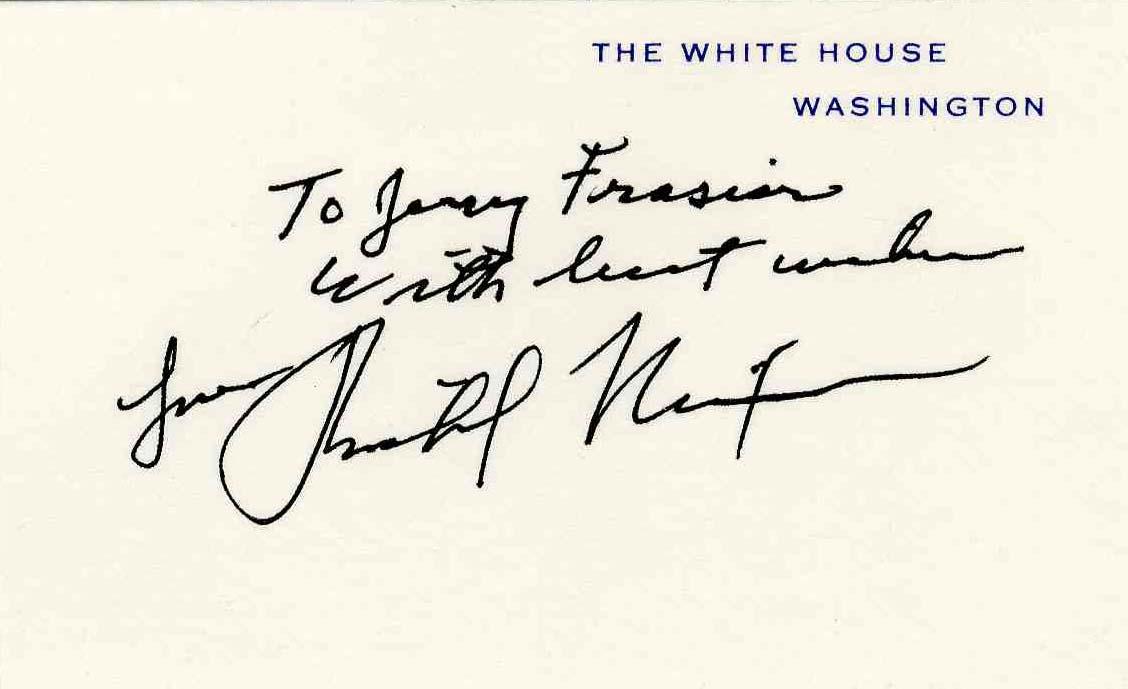 THE WHITE HOUSE
WASHINGTON
To Jerry Frasier
With best wishes
from Richard Nixon